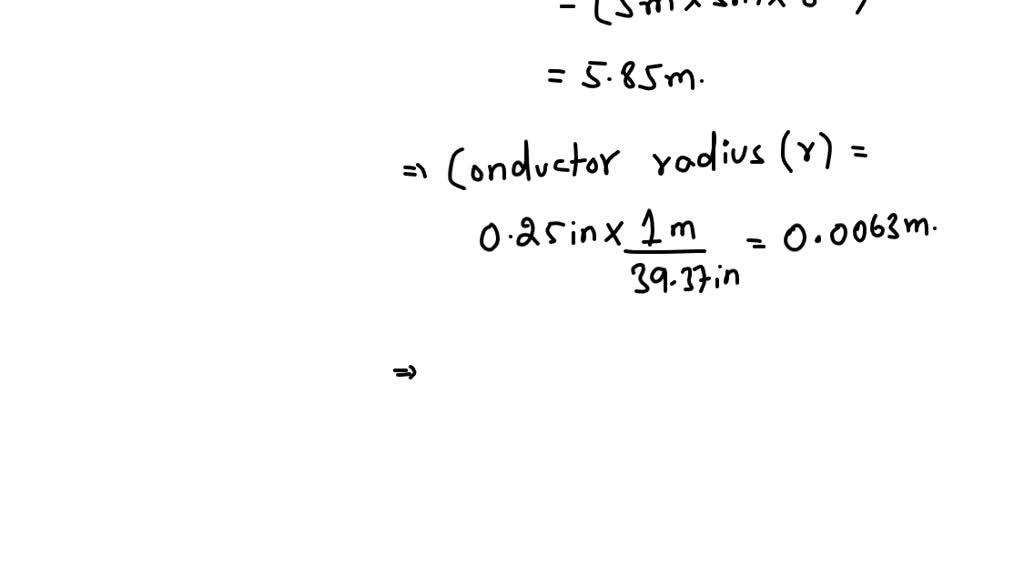 = 5.85m.
⇒ Conductor radius (r) =
0.25in x 1m / 39.37in = 0.0063m.
⇒